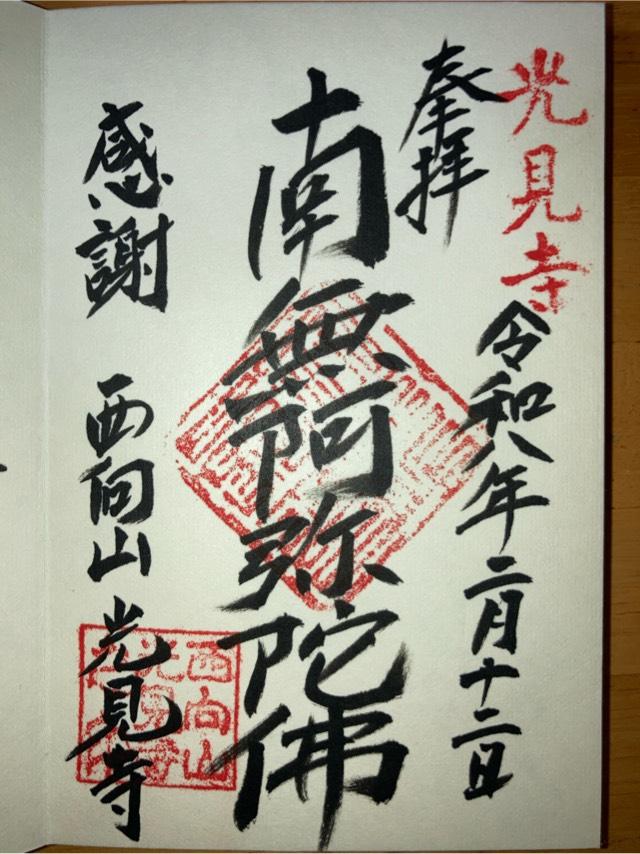 光見寺
奉拝
令和八年二月十二日
南無阿弥陀佛
感謝
西向山 光見寺
西向山